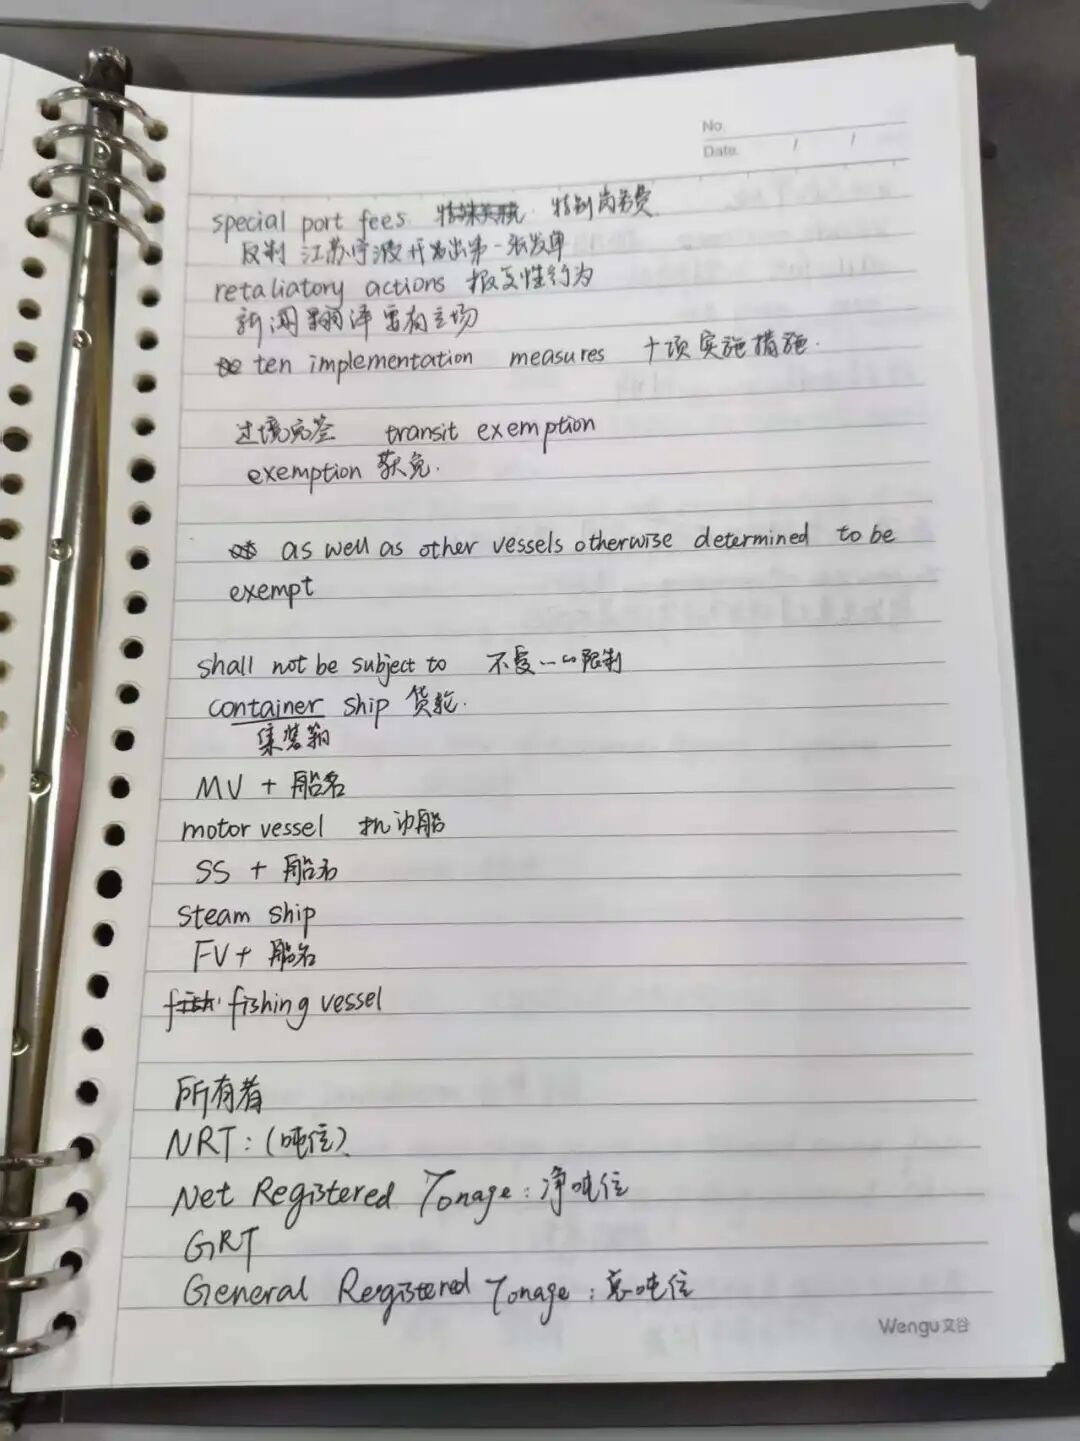 No.
Date. / /
special port fees 特别商务费
反制 江苏宁波开出第一张发单
retaliatory actions 报复性行为
新闻翻译要有立场
ten implementation measures 十项实施措施.
过境免签 transit exemption
exemption 获免.
as well as other vessels otherwise determined to be
exempt
shall not be subject to 不受…的限制
container ship 货轮.
集装箱
MV + 船名
motor vessel 机动船
SS + 船名
steam ship
FV + 船名
fish fishing vessel
所有者
NRT: (吨位)
Net Registered Tonage: 净吨位
GRT
General Registered Tonage: 总吨位
Wengu 文谷